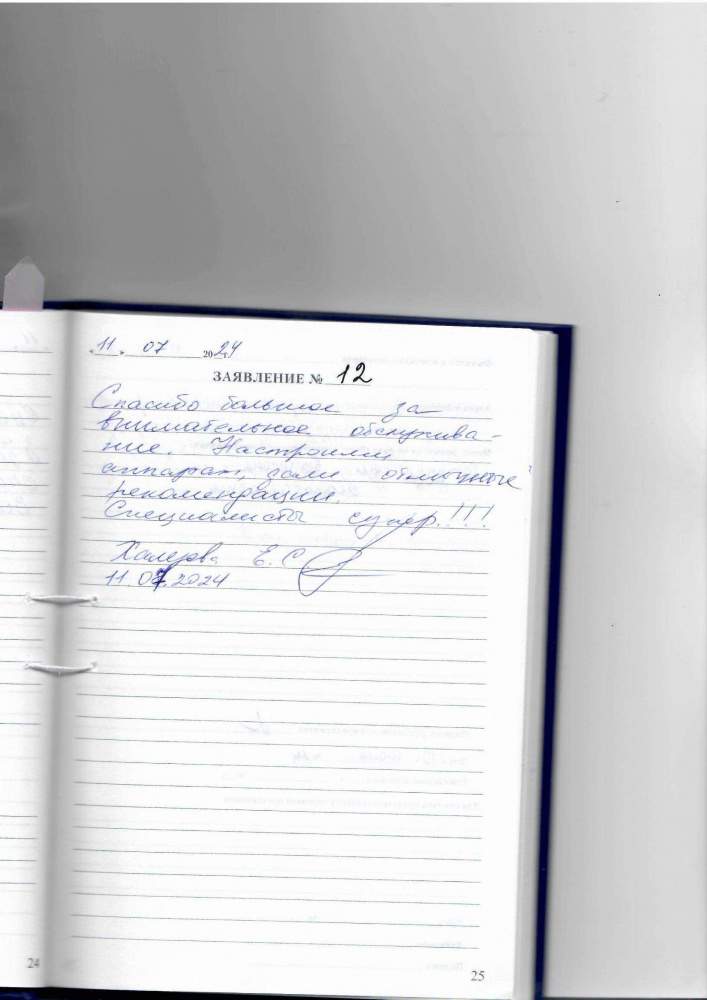 « 11 » 07 2024
ЗАЯВЛЕНИЕ № 12
Спасибо большое за
внимательное обслужива-
ние. Настроили
аппарат, дали отличные
рекомендации.
Специалисты супер!!!
Е.С
11.07.2024
24
25